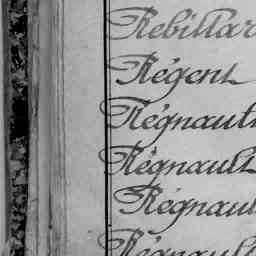 Rebillar
Régent
Régnault
Régnault
Régnaul
Régnault